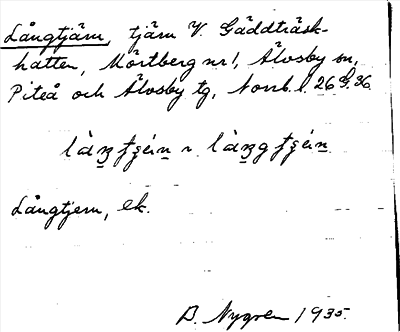 Långtjärn, tjärn V. Gäddträsk-
hatten, Mörtberg nr 1, Älvsby sn,
Piteå och Älvsby tg, Norrb. l. 26 36
Långtjern, ek.
B. Nygren 1935.